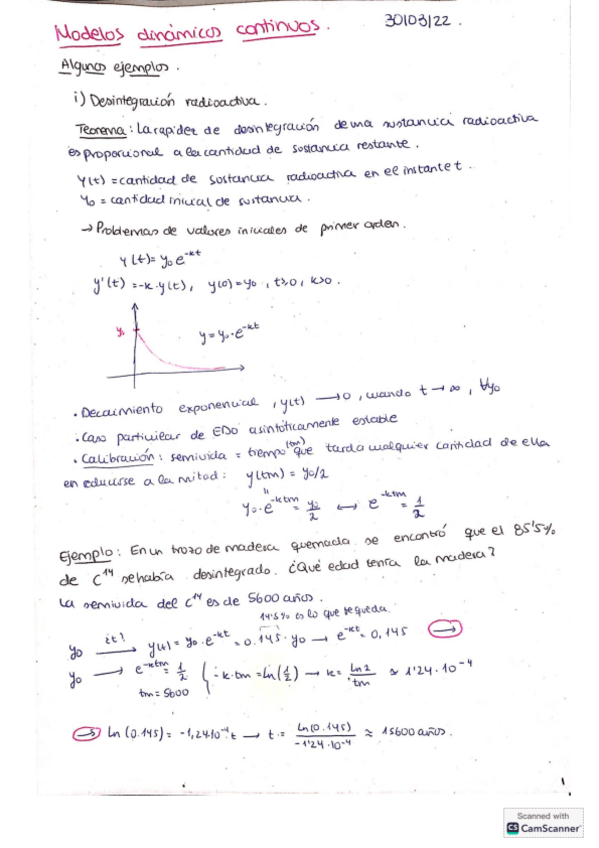 Modelos dinámicos continuos. 30/03/22.
Algunos ejemplos.
i) Desintegración radioactiva.
Teorema: La rapidez de desintegración de una sustancia radioactiva
es proporcional a la cantidad de sustancia restante.
y(t) = cantidad de sustancia radioactiva en el instante t.
y0 = cantidad inicial de sustancia.
→ Problemas de valores iniciales de primer orden.
y(t) = y0 e^-kt
y'(t) = -k·y(t), y(0) = y0, t≥0, k>0.
y0
y = y0·e^-kt
· Decaimiento exponencial, y(t) → 0, cuando t → ∞, ∀y0
· Caso particular de EDO asintóticamente estable
· Calibración: semivida = tiempo (tm) que tarda cualquier cantidad de ella
en reducirse a la mitad: y(tm) = y0/2
y0·e^-ktm = y0/2 ↔ e^-ktm = 1/2
Ejemplo: En un trozo de madera quemada se encontró que el 85'5%
de C^14 se había desintegrado. ¿Qué edad tenía la madera?
La semivida del C^14 es de 5600 años.
14'5% es lo que se queda.
y0 → y(t) = y0·e^-kt = 0.145·y0 → e^-kt = 0,145 →
y0 → e^-ktm = 1/2 { -k·tm = ln(1/2) → k = ln2/tm ≈ 1'24·10^-4
tm = 5600
→ ln(0.145) = -1,24·10^-4 t → t = ln(0.145)/-1'24·10^-4 ≈ 15600 años.
1
Scanned with
CS CamScanner